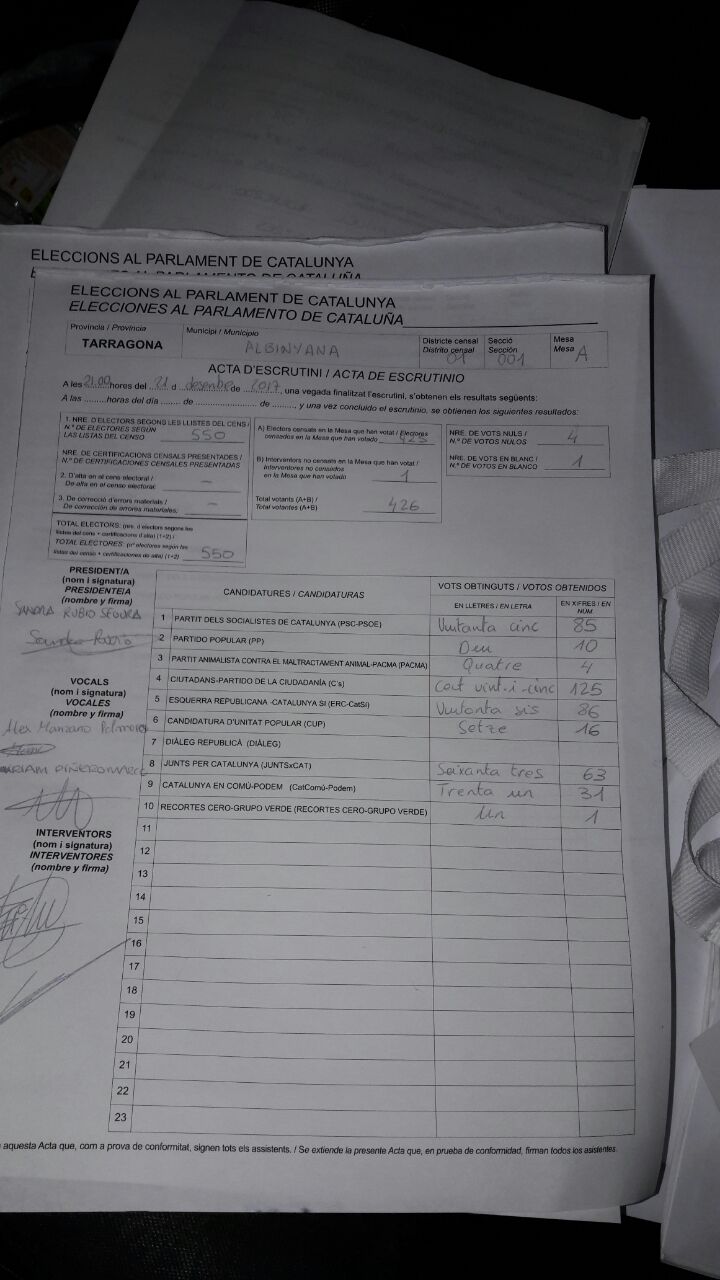 ELECCIONS AL PARLAMENT DE CATALUNYA
ELECCIONS AL PARLAMENT DE CATALUNYA
ELECCIONES AL PARLAMENTO DE CATALUÑA
Província / Provincia
TARRAGONA
Municipi / Municipio
ALBINYANA
Districte censal
Distrito censal
01
Secció
Sección
001
Mesa
Mesa A
ACTA D'ESCRUTINI / ACTA DE ESCRUTINIO
A les 21.00 hores del 21 d desembre de 2017, una vegada finalitzat l'escrutini, s'obtenen els resultats següents:
A las ......... horas del día ....... de .................... de ........., y una vez concluido el escrutinio, se obtienen los siguientes resultados:
1. NRE. D'ELECTORS SEGONS LES LLISTES DEL CENS /
N.º DE ELECTORES SEGÚN
LAS LISTAS DEL CENSO 550
NRE. DE CERTIFICACIONS CENSALS PRESENTADES /
N.º DE CERTIFICACIONES CENSALES PRESENTADAS
2. D'alta en el cens electoral /
De alta en el censo electoral: –
3. De correcció d'errors materials /
De corrección de errores materiales: –
TOTAL ELECTORS: (nre. d'electors segons les
llistes del cens + certificacions d'alta) (1+2) /
TOTAL ELECTORES: (nº electores según las
listas del censo + certificaciones de alta) (1+2) 550
A) Electors censats en la Mesa que han votat / Electores
censados en la Mesa que han votado
B) Interventors no censats en la Mesa que han votat /
Interventores no censados
en la Mesa que han votado 1
Total votants (A+B) /
Total votantes (A+B) 426
NRE. DE VOTS NULS /
N.º DE VOTOS NULOS 4
NRE. DE VOTS EN BLANC /
N.º DE VOTOS EN BLANCO 1
PRESIDENT/A
(nom i signatura)
PRESIDENTE/A
(nombre y firma)
SANDRA RUBIO SEGURA
Sandra Rubio
VOCALS
(nom i signatura)
VOCALES
(nombre y firma)
Alex Manzano
INTERVENTORS
(nom i signatura)
INTERVENTORES
(nombre y firma)
CANDIDATURES / CANDIDATURAS
VOTS OBTINGUTS / VOTOS OBTENIDOS
EN LLETRES / EN LETRA
EN XIFRES / EN NÚM.
1 PARTIT DELS SOCIALISTES DE CATALUNYA (PSC-PSOE) Vuitanta cinc 85
2 PARTIDO POPULAR (PP) Deu 10
3 PARTIT ANIMALISTA CONTRA EL MALTRACTAMENT ANIMAL-PACMA (PACMA) Quatre 4
4 CIUTADANS-PARTIDO DE LA CIUDADANÍA (C's) Cent vint-i-cinc 125
5 ESQUERRA REPUBLICANA -CATALUNYA SÍ (ERC-CatSí) Vuitanta sis 86
6 CANDIDATURA D'UNITAT POPULAR (CUP) Setze 16
7 DIÀLEG REPUBLICÀ (DIÀLEG)
8 JUNTS PER CATALUNYA (JUNTSxCAT) Seixanta tres 63
9 CATALUNYA EN COMÚ-PODEM (CatComú-Podem) Trenta un 31
10 RECORTES CERO-GRUPO VERDE (RECORTES CERO-GRUPO VERDE) Un 1
11
12
13
14
15
16
17
18
19
20
21
22
23
aquesta Acta que, com a prova de conformitat, signen tots els assistents. / Se extiende la presente Acta que, en prueba de conformidad, firman todos los asistentes.